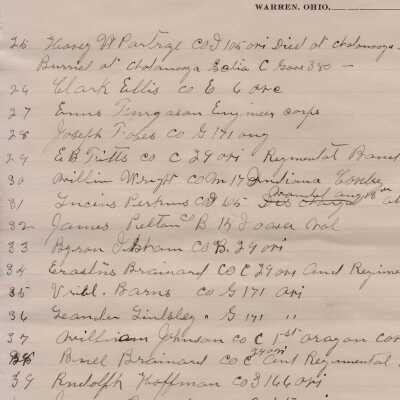 WARREN, OHIO,
25 Harvy W Partrge CO I 105 ovi Died at Chatanooga
Burried at Chatanooga Sectia C Grave 380 -
26 Clark Ellis Co E 6 ovc
27 Enns Furgason Engineer corps
28 Joseph Co G 171 ong
29 E B Titts Co C 29 ovi Regmental Band
30 Willin Wright Co M 17 Indiana
31 Lucius Perkins Co I 105
32 James Pelton Co B
33 Byron Isham Co B. 29 ovi
34 Erastus Brainard Co C 29 ovi And Regime
35 Uriel. Barns Co G 171 ovi
36 Leander " G 171 "
37 William Johnson Co C 1st oragon
38 Buel Brainard Co C 29 ovi And Regimental
39 Rudolph Hoffman Co I 166 ovi
James